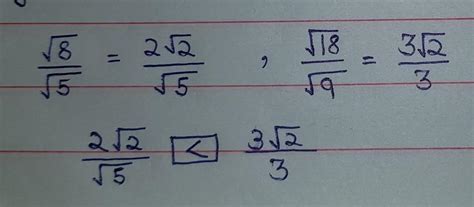 √8/√5 = 2√2/√5 , √18/√9 = 3√2/3
2√2/√5 < 3√2/3